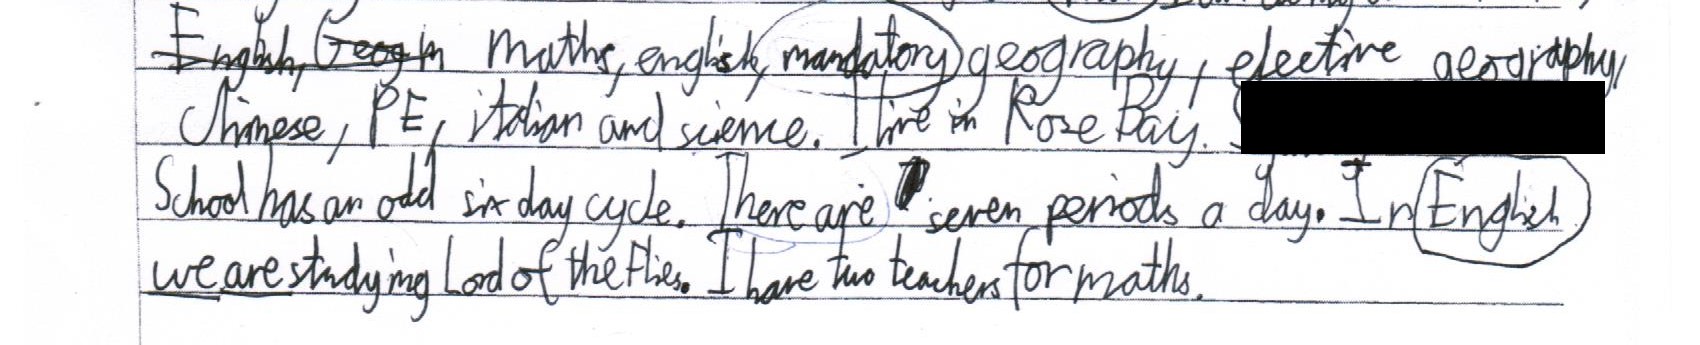 English, Geog m maths, english, mandatory geography, elective geography,
Chinese, PE, italian and science. I live in Rose Bay.
School has an odd six day cycle. There are seven periods a day. In English
we are studying Lord of the Flies. I have two teachers for maths.